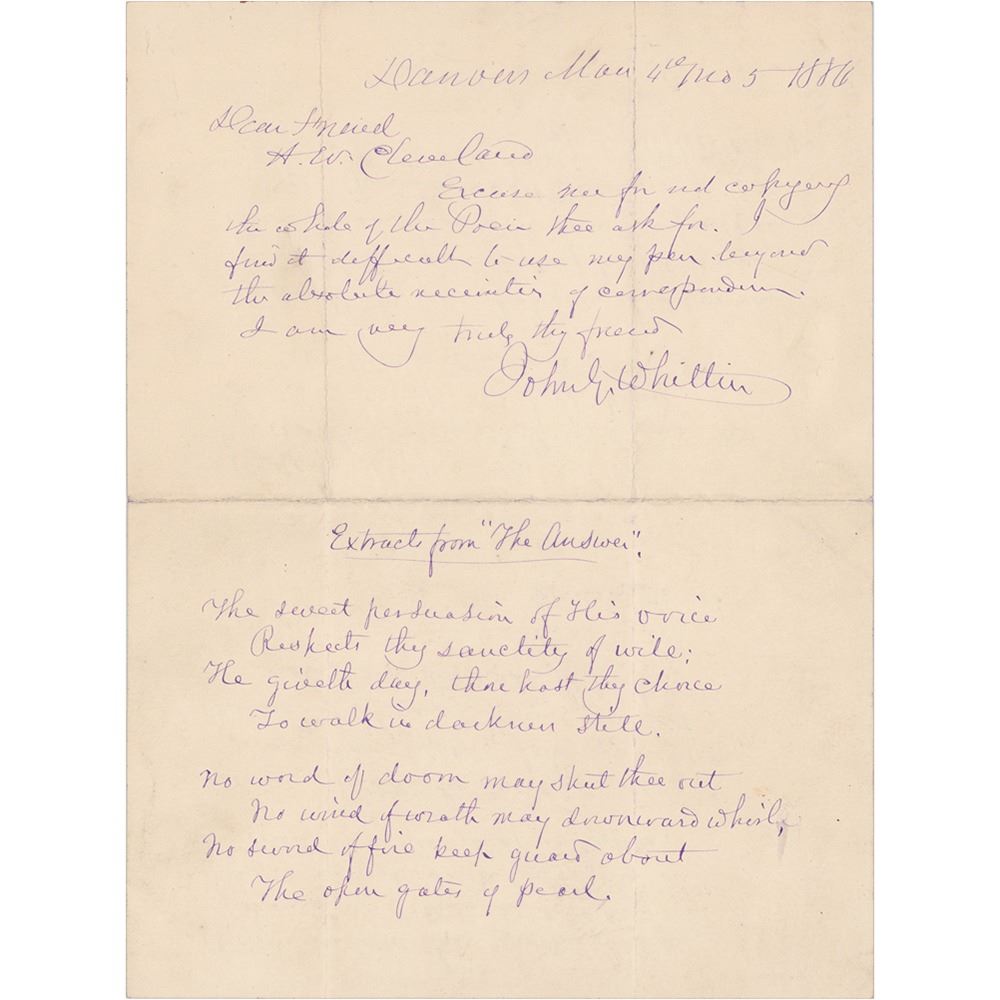 Danvers Mass 4th mo 5 1886
Dear Friend
H. W. Cleveland
Excuse me for not copying
the whole of the Poem thee ask for. I
find it difficult to use my pen beyond
the absolute necessities of correspondence.
I am very truly thy friend
John G. Whittier
Extracts from "The Answer".
The sweet persuasion of His voice
Respects thy sanctity of will;
He giveth day, thou hast thy choice
To walk in darkness still.
No word of doom may shut thee out
No wind of wrath may downward whirl,
No sword of fire keep guard about
The open gates of pearl.